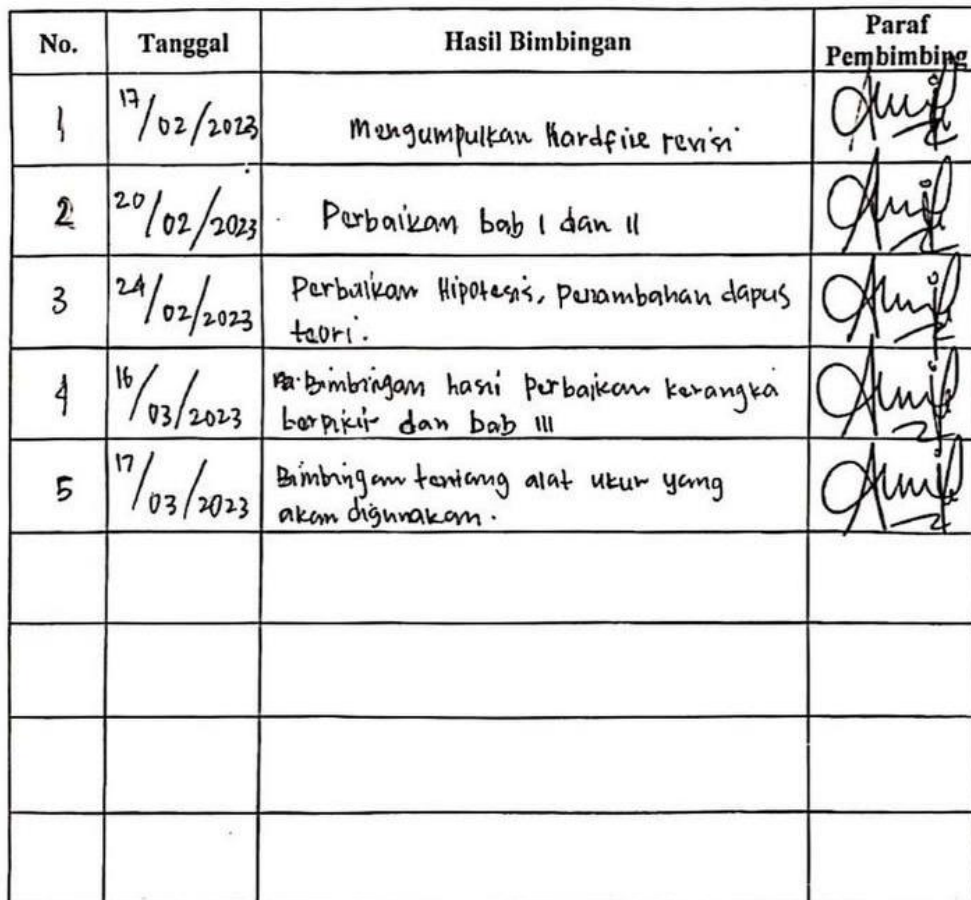 No. Tanggal Hasil Bimbingan Paraf
Pembimbing
1 17/02/2023 Mengumpulkan Hardfile revisi
2 20/02/2023 Perbaikan bab I dan II
3 24/02/2023 Perbaikan Hipotesis, penambahan dapus
teori.
4 16/03/2023 Bimbingan hasil perbaikan kerangka
berpikir dan bab III
5 17/03/2023 Bimbingan tentang alat ukur yang
akan digunakan.